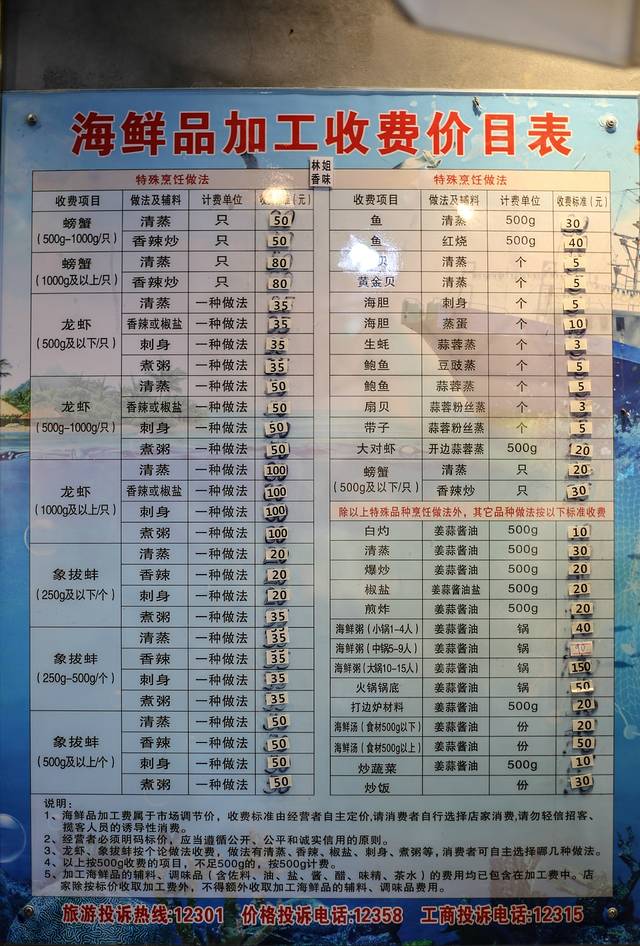 海鲜品加工收费价目表
林姐
香味
特殊烹饪做法
收费项目 做法及辅料 计费单位 (元)
螃蟹 (500g-1000g/只) 清蒸 只 50
香辣炒 只 50
螃蟹 (1000g及以上/只) 清蒸 只 80
香辣炒 只 80
龙虾 (500g及以下/只) 清蒸 一种做法 35
香辣或椒盐 一种做法 35
刺身 一种做法 35
煮粥 一种做法 35
龙虾 (500g-1000g/只) 清蒸 一种做法 50
香辣或椒盐 一种做法 50
刺身 一种做法 50
煮粥 一种做法 50
龙虾 (1000g及以上/只) 清蒸 一种做法 100
香辣或椒盐 一种做法 100
刺身 一种做法 100
煮粥 一种做法 100
象拔蚌 (250g及以下/个) 清蒸 一种做法 20
香辣 一种做法 20
刺身 一种做法 20
煮粥 一种做法 35
象拔蚌 (250g-500g/个) 清蒸 一种做法 35
香辣 一种做法 35
刺身 一种做法 35
煮粥 一种做法 35
象拔蚌 (500g及以上/个) 清蒸 一种做法 50
香辣 一种做法 50
刺身 一种做法 50
煮粥 一种做法 50
特殊烹饪做法
收费项目 做法及辅料 计费单位 收费标准(元)
鱼 清蒸 500g 30
鱼 红烧 500g 40
贝 清蒸 个 5
黄金贝 清蒸 个 5
海胆 刺身 个 5
海胆 蒸蛋 个 10
生蚝 蒜蓉蒸 个 3
鲍鱼 豆豉蒸 个 5
鲍鱼 蒜蓉蒸 个 5
扇贝 蒜蓉粉丝蒸 个 3
带子 蒜蓉粉丝蒸 个 5
大对虾 开边蒜蓉蒸 500g 20
螃蟹 (500g及以下/只) 清蒸 只 20
香辣炒 只 30
除以上特殊品种烹饪做法外，其它品种做法按以下标准收费
白灼 姜蒜酱油 500g 10
清蒸 姜蒜酱油 500g 30
爆炒 姜蒜酱油 500g 20
椒盐 姜蒜酱油盐 500g 20
煎炸 姜蒜酱油 500g 20
海鲜粥(小锅1-4人) 姜蒜酱油 锅 40
海鲜粥(中锅5-9人) 姜蒜酱油 锅
海鲜粥(大锅10-15人) 姜蒜酱油 锅 150
火锅锅底 姜蒜酱油 锅 50
打边炉材料 姜蒜酱油 500g 20
海鲜汤(食材500g以下) 姜蒜酱油 份 20
海鲜汤(食材500g以上) 姜蒜酱油 份 50
炒蔬菜 姜蒜酱油 500g 10
炒饭 份 30
说明：
1、海鲜品加工费属于市场调节价，收费标准由经营者自主定价,请消费者自行选择店家消费,请勿轻信招客、
揽客人员的诱导性消费。
2、经营者必须明码标价，应当遵循公开、公平和诚实信用的原则。
3、龙虾、象拔蚌按个论做法收费，做法有清蒸、香辣、椒盐、刺身、煮粥等，消费者可自主选择哪几种做法。
4、以上按500g收费的项目，不足500g的，按500g计费。
5、加工海鲜品的辅料、调味品（含佐料、油、盐、酱、醋、味精、茶水）的费用均已包含在加工费中。店
家除按标价收取加工费外，不得额外收取加工海鲜品的辅料、调味品费用。
旅游投诉热线:12301 价格投诉电话:12358 工商投诉电话:12315